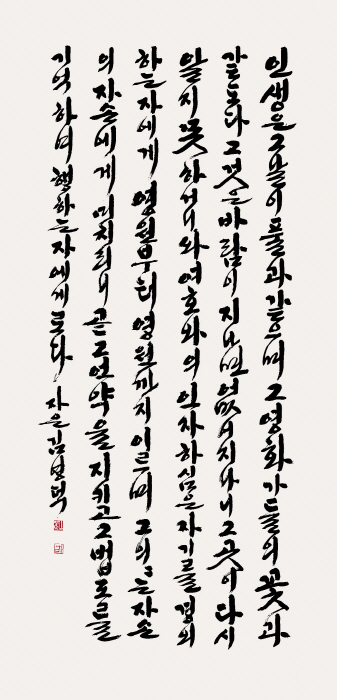 인생은 그 날이 풀과 같으며 그 영화가 들의 꽃과
같도다 그것은 바람이 지나면 없어지나니 그 곳이 다시
알지 못하거니와 여호와의 인자하심은 자기를 경외
하는 자에게 영원부터 영원까지 이르며 그의 의는 자손
의 자손에게 미치리니 곧 그 언약을 지키고 그 법도를
기억하여 행하는 자에게로다 자은